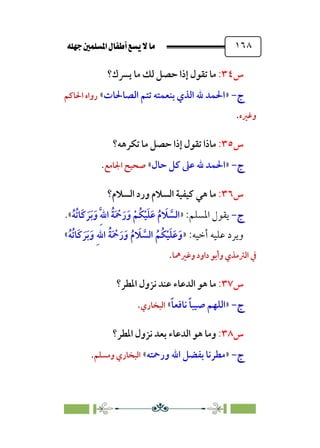 ما لا يسع أطفال المسلمين جهله
١٦٨
س٣٤: ما تقول إذا حصل لك ما يسرك؟
ج- «الحمد لله الذي بنعمته تتم الصالحات» رواه الحاكم
وغيره.
س٣٥: ماذا تقول إذا حصل ما تكرهه؟
ج- «الحمد لله على كل حال» صحيح الجامع.
س٣٦: ما هي كيفية السلام ورد السلام؟
ج- يقول المسلم: «السَّلَامُ عَلَيْكُمْ وَرَحْمَةُ اللَّهِ وَبَرَكَاتُهُ».
ويرد عليه أخيه: «وَعَلَيْكُمُ السَّلَامُ وَرَحْمَةُ اللَّهِ وَبَرَكَاتُهُ»
في الترمذي وأبو داود وغيرهما.
س٣٧: ما هو الدعاء عند نزول المطر؟
ج- «اللهم صيباً نافعاً» البخاري.
س٣٨: وما هو الدعاء بعد نزول المطر؟
ج- «مطرنا بفضل الله ورحمته» البخاري ومسلم.